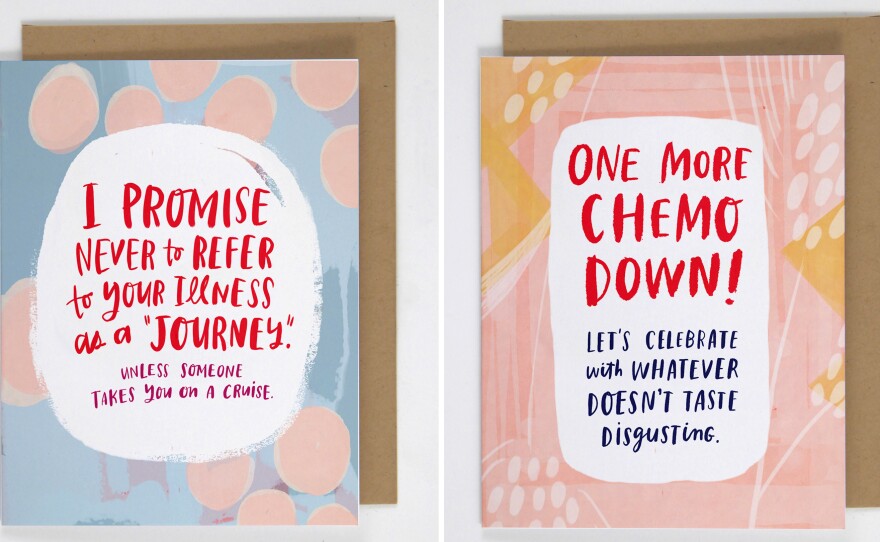 I PROMISE
NEVER to REFER
to YOUR ILLNESS
as a "JOURNEY".
UNLESS SOMEONE
TAKES YOU ON A CRUISE.
ONE MORE
CHEMO
DOWN!
LET'S CELEBRATE
with WHATEVER
DOESN'T TASTE
DISGUSTING.